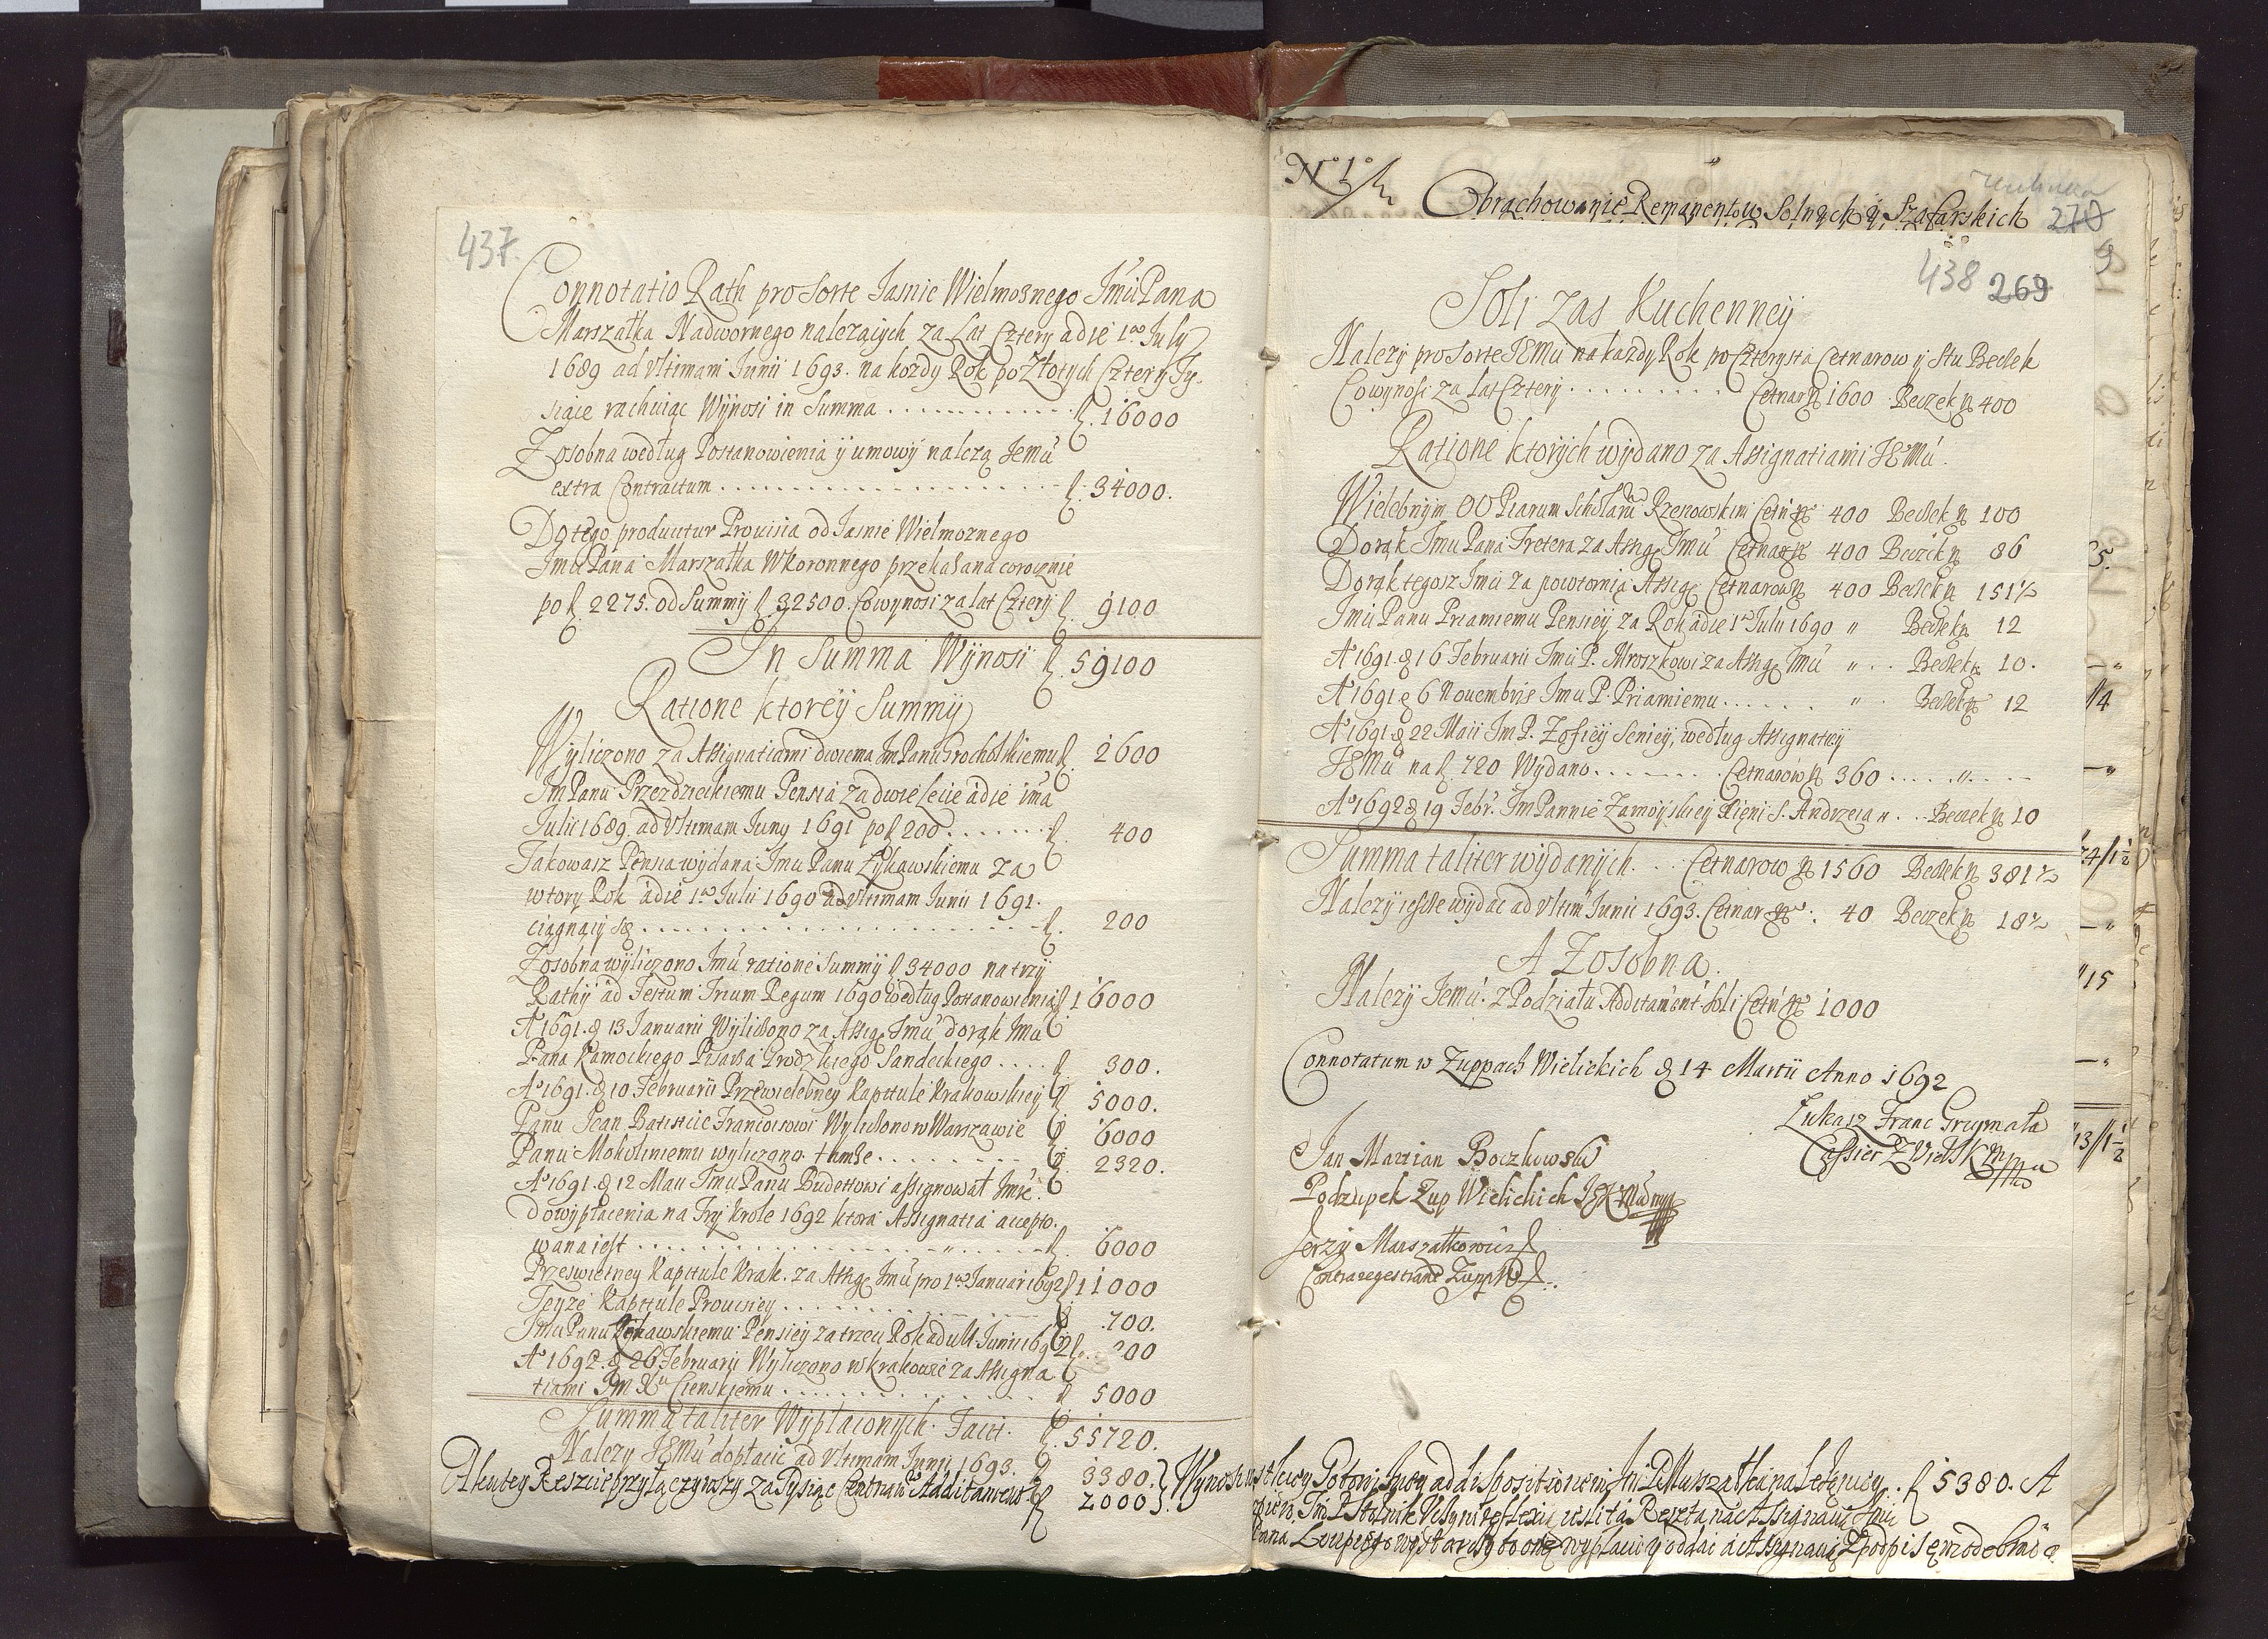 437.
Connotatio Rath pro Sorte Jasnie Wielmoznego Jmći Pana
Marszałka Nadwornego nalezących za Lat Cztery a die 1ma July
1689 ad Vltimam Junii 1693. na kozdy Rok po Złotych Cztery Ty-
siące rachuiąc Wÿnosi in Summa . . . . . . . . . . . . fl. 16000
Zosobna według Postanowienia ÿ umowÿ nalezą Jemu
extra Contractum . . . . . . . . . . . . . . . . . . . . fl. 34000.
Do tego producitur Prouisia od Jasnie Wielmoznego
Jmći Pana Marszałka W Koronnego przekazana corocznie
po fl. 2275. od Summÿ fl 32500. Co wynosi za lat Cztery fl. 9100
In Summa Wÿnosi fl. 59100
Ratione ktoreÿ Summÿ
Wÿliczono za Assignatiami dwiema Jm Panu Grocholskiemu fl. 2600
Jm Panu Przezdzieckiemu Pensia za dwie lecie a die ima
Julii 1689. ad Vltimam Juny 1691 po fl 200 . . . . . . . fl. 400
Takowasz Pensia wydana Jmći Panu Zykawskiemu za
wtory Rok a die 1ma Julii 1690 ad Vltimam Junii 1691.
ciągnąÿ się . . . . . . . . . . . . . . . . . . . . . fl. 200
Zosobna wyliczono Jmu ratione Summÿ fl 34000 na trzÿ
Rathÿ ad Festum Trium Regum 1690 według Postanowienia fl 16000
Ao 1691. d 13 Januarii Wÿliczono za Assig. Jmći do rąk Jmći
Pana Kamockiego Pisarza Grodzkiego Sandeckiego . . . . fl 300.
Ao 1691. d 10 Februarii Przewielebney Kapitule Krakowskieÿ fl 5000.
Panu Jean Batistcie Francoisowi Wyliczono w Warszawie fl 6000
Panu Mokolskiemu wyliczono tamze . . . . . . . . fl. 2320.
Ao 1691. d 12 Maii Jmći Panu Budettowi assignował Jmć
do wypłacenia na Trzy Krole 1692 ktora Assignatia accepto-
wana iest . . . . . . . . . . . . . . . . . . fl. 6000
Przeswietney Kapitule Krak. za Assig. Jmći pro 1ma Januari 1692 fl 11000
Teyze Kapitule Prouisiey . . . . . . . . . . . . . . . . fl 700.
Jmći Panu Zykawskiemu Pensieÿ za trzeci Rok ad ult. Junii 1692 fl. 200
Ao 1692. d 26 Februarÿ Wyliczono w Krakowie za Assigna
tiami Jm Xu Cienskiemu . . . . . . . . . . . . . . . fl 5000
Summa taliter Wypłaconych. Facit. fl. 55720.
Nalezy JEMu dopłacic ad Vltimam Junii 1693. fl 3380.
A ku tey Reszcie przyłączywszy za Tysiąc Cetnarow Additamentu fl 2000
No 1o
Obrachowanie Remanentow Solnych ÿ Szafarskich
270
438 269
Soli zas Kuchenneÿ
Nalezÿ pro Sorte JEMći na kazdy Rok po Czterysta Cetnarow ÿ Stu Beczek
Co wynosi za Lat Czterÿ . . . . . . . . . Cetnar No 1600 Beczek No 400
Ratione ktorych wÿdano za Assignatiami JEMći.
Wielebnÿm OO Piarum Scholarum Rzeszowskim Cetn No 400 Beczek No 100
Do rąk Jmći Pana Tretera za Assig. Jmći Cetnar No 400 Beczek No 86
Do rąk tegosz Jmći za powtornią Assig. Cetnarow No 400 Beczek No 151½
Jmći Panu Priamiemu Pensieÿ za Rok a die 1ma Julii 1690 " Beczek No 12
Ao 1691. d 16 Februarii Jmći P. Mroszkowi za Assig. Jmći " . . Beczek No 10.
Ao 1691 d 6 Nouembris Jmći P. Priamiemu . . . . . . " Beczek No 12
Ao 1691 d 22 Maii Jm P. Zofieÿ Senieÿ, według Assignatieÿ
JEMći na fl. 720 Wydano . . . . . . . Cetnarow No 360 . . . . . " . . . .
Ao 1692 d 19 Febr. Jm Pannie Zamoÿskieÿ Xięni S. Andrzeia " . . . Beczek No 10
Summa taliter wÿdanÿch. . . . Cetnarow No 1560 Beczek No 381½
Nalezÿ ieszcze wydac ad Vltim Junii 1693. Cetnar No . 40 Beczek No 18½
A Zosobna.
Nalezÿ Jemu z Podziału Additament Soli Cetn No 1000
Connotatum w Zuppach Wielickich d 14 Martii Anno 1692
Łukasz Franc Grzymała
Cassier Z Viel
Jan Marrian Boczkowski
Podzupek Zup Wielickich
Jerzÿ Marszałkowicz
Contraregestrant Zupp W
fl 5380. A